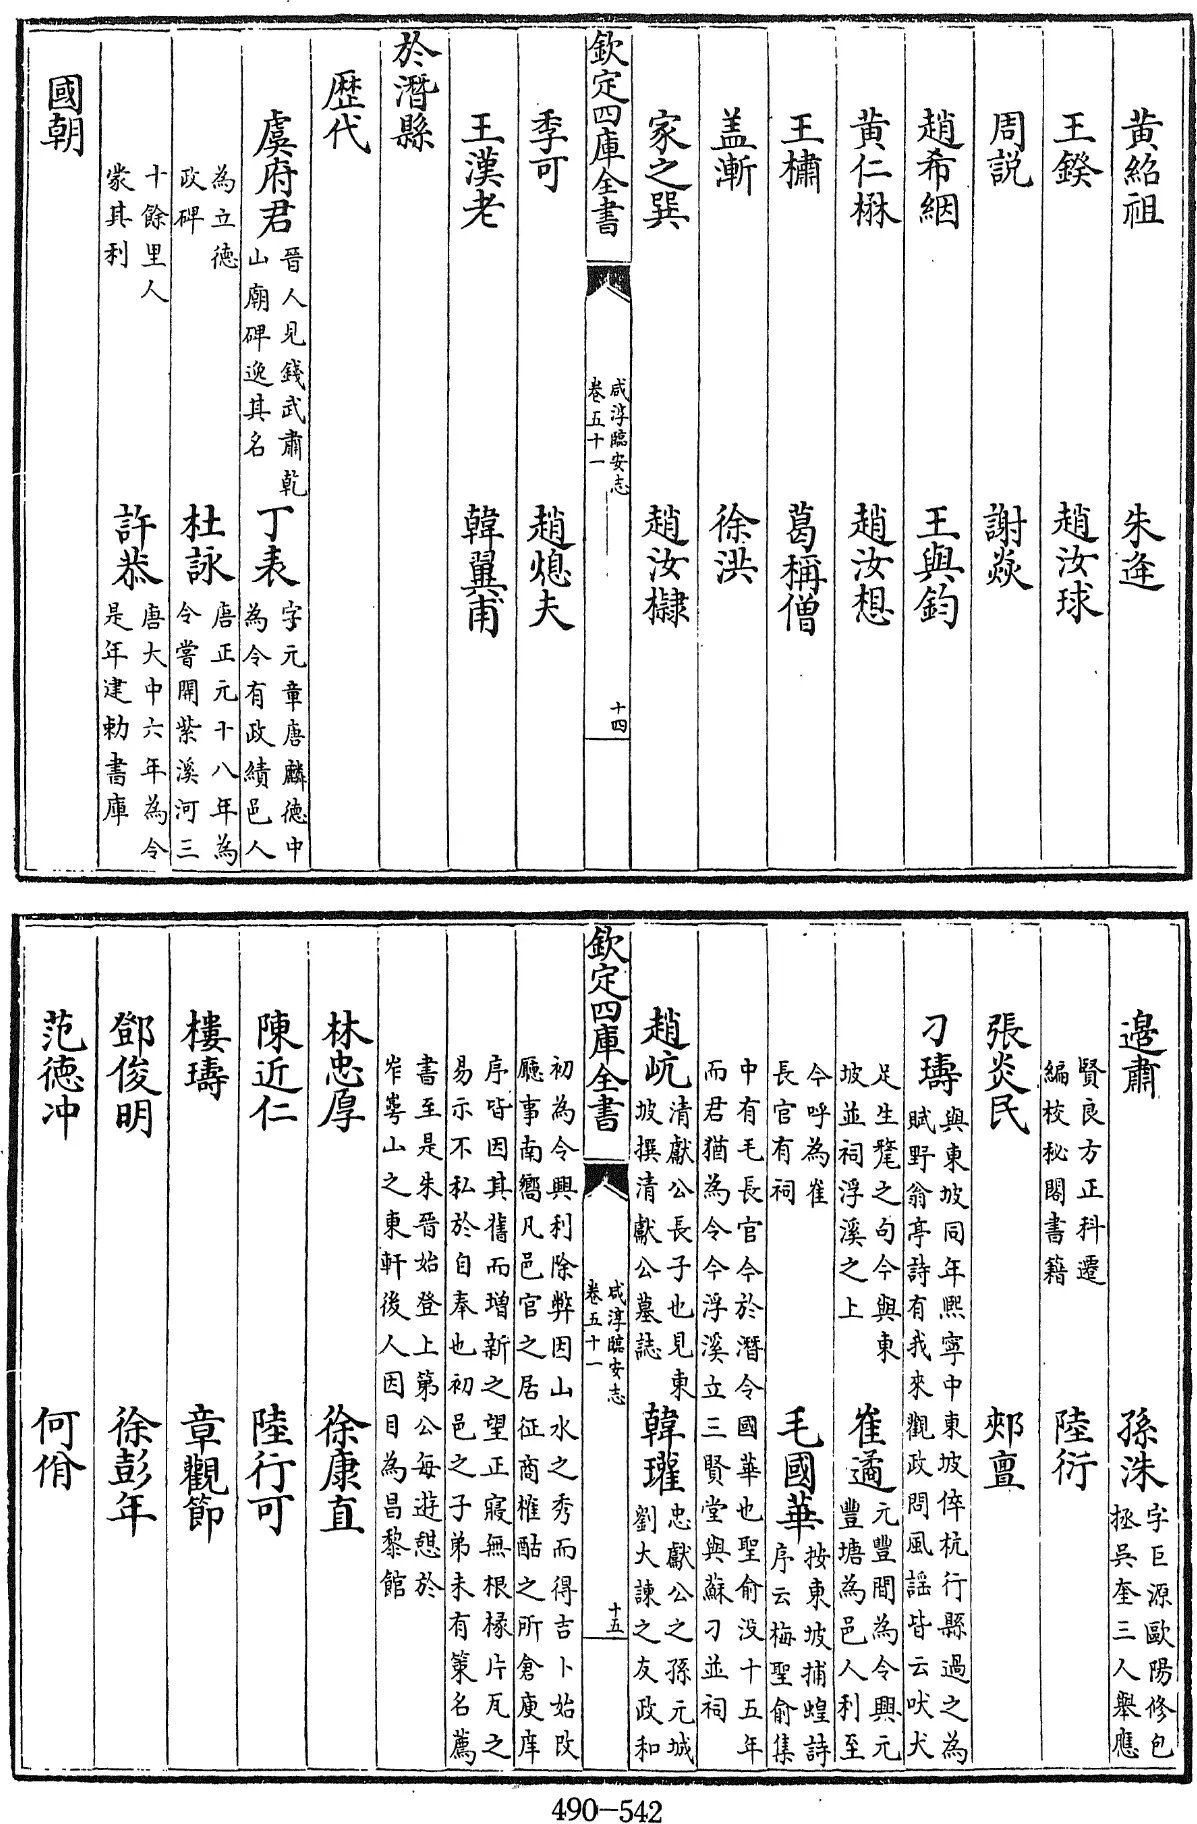 黄紹祖　朱逄
王鍨　趙汝球
周説　謝焱
趙希絪　王與鈞
黄仁楙　趙汝想
王橚　葛稱僧
盖漸　徐洪
家之巽　趙汝櫣
欽定四庫全書　咸淳臨安志卷五十一　十四
季可　趙熄夫
王漢老　韓翼甫
於潛縣
歴代
虞府君晉人見錢武肅乾山廟碑逸其名　丁表字元章唐麟德中為令有政績邑人
為立德政碑　杜詠唐正元十八年為令嘗開紫溪河三
十餘里人蒙其利　許恭唐大中六年為令是年建勅書庫
國朝
邉肅　孫洙字巨源歐陽修包拯吳奎三人舉應
賢良方正科遷編校秘閣書籍　陸衍
張炎民　郟亶
刁璹與東坡同年熙寧中東坡倅杭行縣過之為賦野翁亭詩有我來觀政問風謡皆云吠犬
足生氂之句今與東坡並祠浮溪之上　崔遹元豐間為令興元豐塘為邑人利至
今呼為崔長官有祠　毛國華按東坡捕蝗詩序云梅聖俞集
中有毛長官今於潛令國華也聖俞没十五年而君猶為令今浮溪立三賢堂與蘇刁並祠
趙㞹清獻公長子也見東坡撰清獻公墓誌　韓瓘忠獻公之孫元城劉大諫之友政和
欽定四庫全書　咸淳臨安志卷五十一　十五
初為令興利除弊因山水之秀而得吉卜始改廳事南嚮凡邑官之居征商榷酤之所倉庾庠
序皆因其舊而增新之望正寢無根椽片瓦之易示不私於自奉也初邑之子弟未有策名薦
書至是朱晉始登上第公每遊憩於岞㟧山之東軒後人因目為昌黎館
林忠厚　徐康直
陳近仁　陸行可
樓璹　章觀節
鄧俊明　徐彭年
范徳冲　何佾
490-542